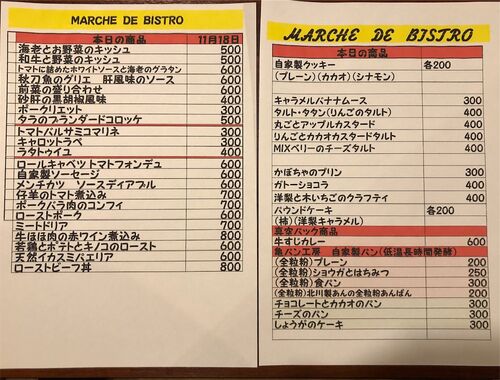 MARCHE DE BISTRO
本日の商品 11月18日
海老とお野菜のキッシュ 500
和牛と野菜のキッシュ 500
トマトに詰めたホワイトソースと海老のグラタン 600
秋刀魚のグリエ 肝風味のソース 600
前菜の盛り合わせ 600
砂肝の黒胡椒風味 400
ポークリエット 300
タラのブランダードコロッケ 500
トマトバルサミコマリネ 300
キャロットラペ 300
ラタトゥイユ 400
ロールキャベツ トマトフォンデュ 600
自家製ソーセージ 600
メンチカツ ソースディアブル 600
仔羊のトマト煮込み 700
ポークバラ肉のコンフィ 700
ローストポーク 600
ミートドリア 700
牛ほほ肉の赤ワイン煮込み 800
若鶏とポテトとキノコのロースト 600
天然イカスミパエリア 600
ローストビーフ丼 800
MARCHE DE BISTRO
本日の商品
自家製ウッキー 各200
(プレーン)(カカオ)(シナモン)
キャラメルバナナムース 300
タルト・タタン(りんごのタルト) 400
丸ごとアップルカスタード 400
りんごとカカオカスタードタルト 400
MIXベリーのチーズタルト 400
かぼちゃのプリン 300
ガトーショコラ 400
洋梨と木いちごのクラフティ 400
パウンドケーキ 各200
(柿)(洋梨キャラメル)
真空パック商品
牛すじカレー 600
亀パン工房 自家製パン(低温長時間発酵)
(全粒粉)プレーン 200
(全粒粉)ショウガとはちみつ 250
(全粒粉)食パン 300
(全粒粉)北川製あんの全粒粉あんぱん 200
チョコレートとカカオのパン 300
チーズのパン 300
しょうがのケーキ 300